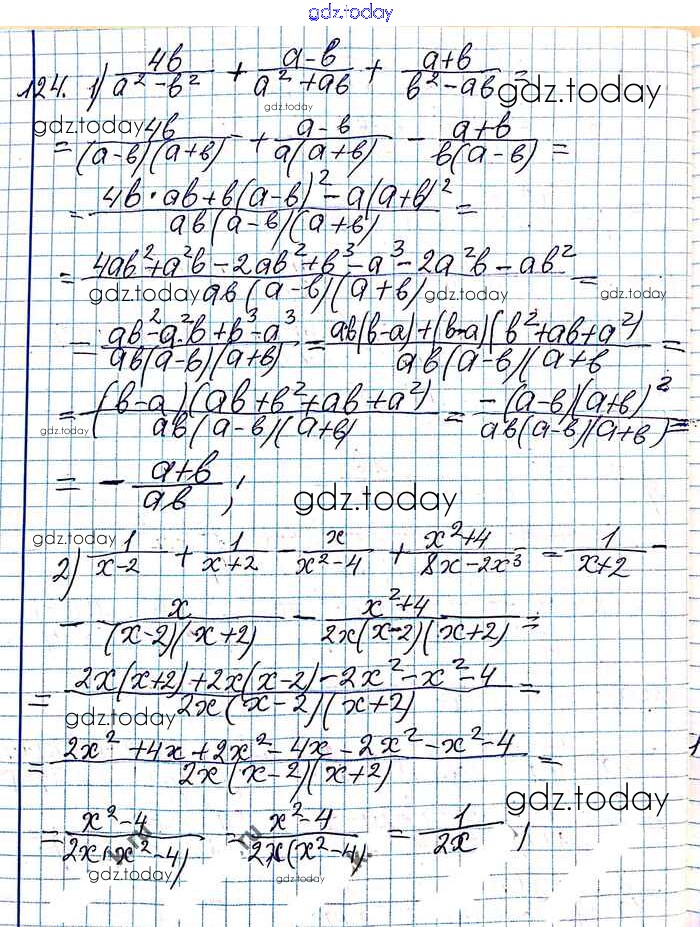 gdz.today
124. 1) 4b/(a² - b²) + (a-b)/(a² + ab) + (a+b)/(b² - ab) = gdz.today
gdz.today
gdz.today
= 4b/((a-b)(a+b)) + (a-b)/(a(a+b)) - (a+b)/(b(a-b)) =
= (4b·ab + b(a-b)² - a(a+b)²)/(ab(a-b)(a+b)) =
= (4ab² + a²b - 2ab² + b³ - a³ - 2a²b - ab²)/(ab(a-b)(a+b)) =
gdz.today gdz.today gdz.today
= (ab² - a²b + b³ - a³)/(ab(a-b)(a+b)) = (ab(b-a) + (b-a)(b² + ab + a²))/(ab(a-b)(a+b =
= (b-a)(ab + b² + ab + a²)/(ab(a-b)(a+b)) = -(a-b)(a+b)²/(ab(a-b)(a+b)) =
gdz.today
= - (a+b)/(ab);
gdz.today
gdz.today
2) 1/(x-2) + 1/(x+2) - x/(x²-4) + (x²+4)/(8x-2x³) = 1/(x+2) -
- x/((x-2)(x+2)) - (x²+4)/(2x(x-2)(x+2)) =
= (2x(x+2) + 2x(x-2) - 2x² - x² - 4)/(2x(x-2)(x+2)) =
gdz.today
= (2x² + 4x + 2x² - 4x - 2x² - x² - 4)/(2x(x-2)(x+2)) =
gdz.today
= (x²-4)/(2x(x²-4)) = (x²-4)/(2x(x²-4)) = 1/(2x);
gdz.today gdz.today